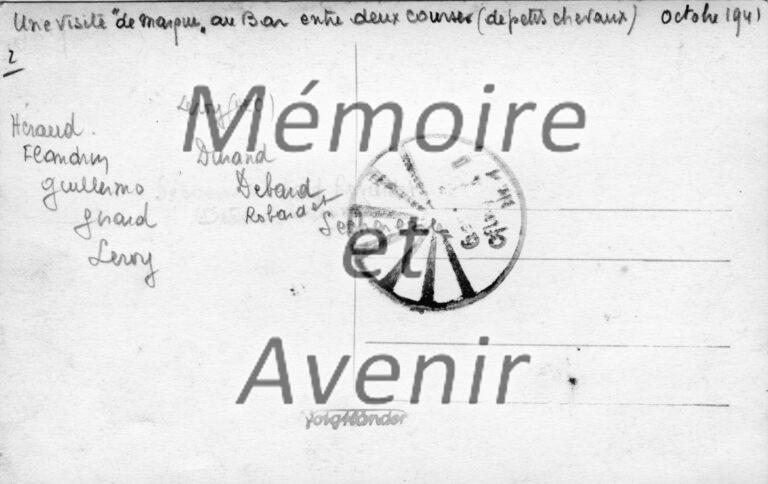 Une visite "de marque" au Bar entre deux courses (de petits chevaux) Octobre 1941
2
Héraud.
Flandrin
Guillermo
Girard
Leroy
Leroy
Durand
Debard
Robardet
Mémoire
et
Avenir
Voigtländer